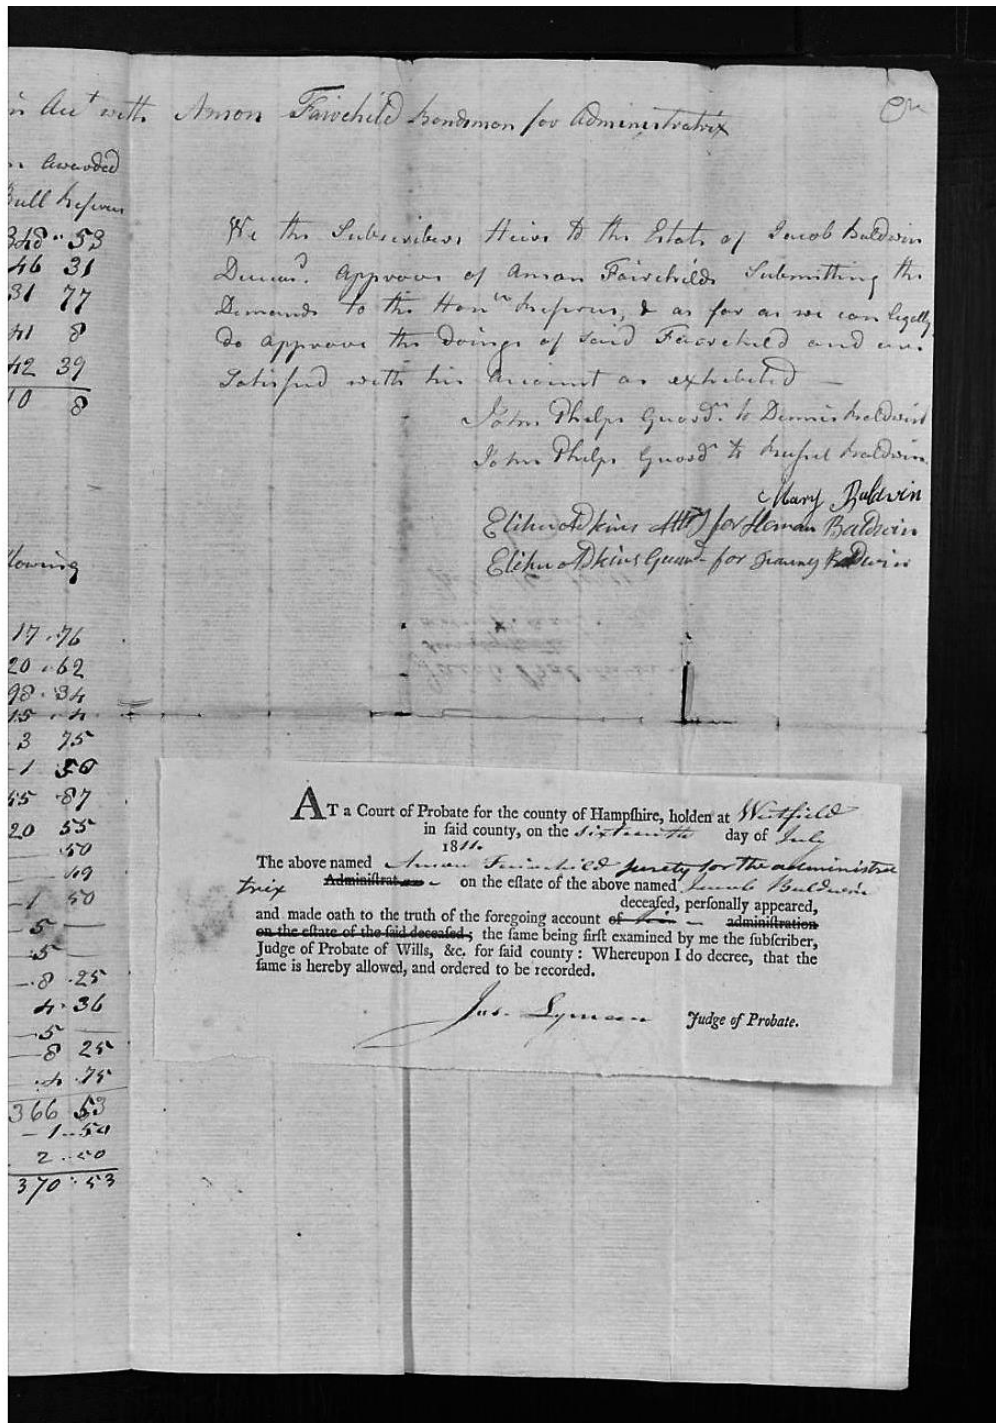 in Acct with Anson Fairchild bondsman for Administratrix Cr
Awarded
Bull
348 " 53
46 31
31 77
41 8
42 39
10 8
We the Subscribers Heirs to the Estate of Jacob Baldwin
Deceasd. Approve of Anson Fairchilds Submitting the
Demands to the Hon Referees, & as far as we can legally
do approve the doings of said Fairchild and are
Satisfied with his Account as exhibited —
John Phelps Guardn. to Dennis Baldwin
John Phelps Guardn to Russel Baldwin
Mary Baldwin
Elihu Adkins Atty for Heman Baldwin
Elihu Adkins Guard- for Baldwin
llowing
17 . 76
20 . 62
98 . 34
15 . 4
3 75
1 50
45 . 87
20 55
50
69
1 50
5 —
5 —
8 . 25
4 . 36
5 —
8 25
4 . 75
366 53
1 . 50
2 . 50
370 . 53
AT a Court of Probate for the county of Hampſhire, holden at Westfield
in ſaid county, on the sixteenth day of July
1811.
The above named Anson Fairchild surety for the administra
trix Adminiſtrat on the eſtate of the above named Jacob Baldwin
deceaſed, perſonally appeared,
and made oath to the truth of the foregoing account of his adminiſtration
on the eſtate of the ſaid deceaſed; the ſame being firſt examined by me the ſubſcriber,
Judge of Probate of Wills, &c. for ſaid county: Whereupon I do decree, that the
ſame is hereby allowed, and ordered to be recorded.
Jos. Lyman Judge of Probate.